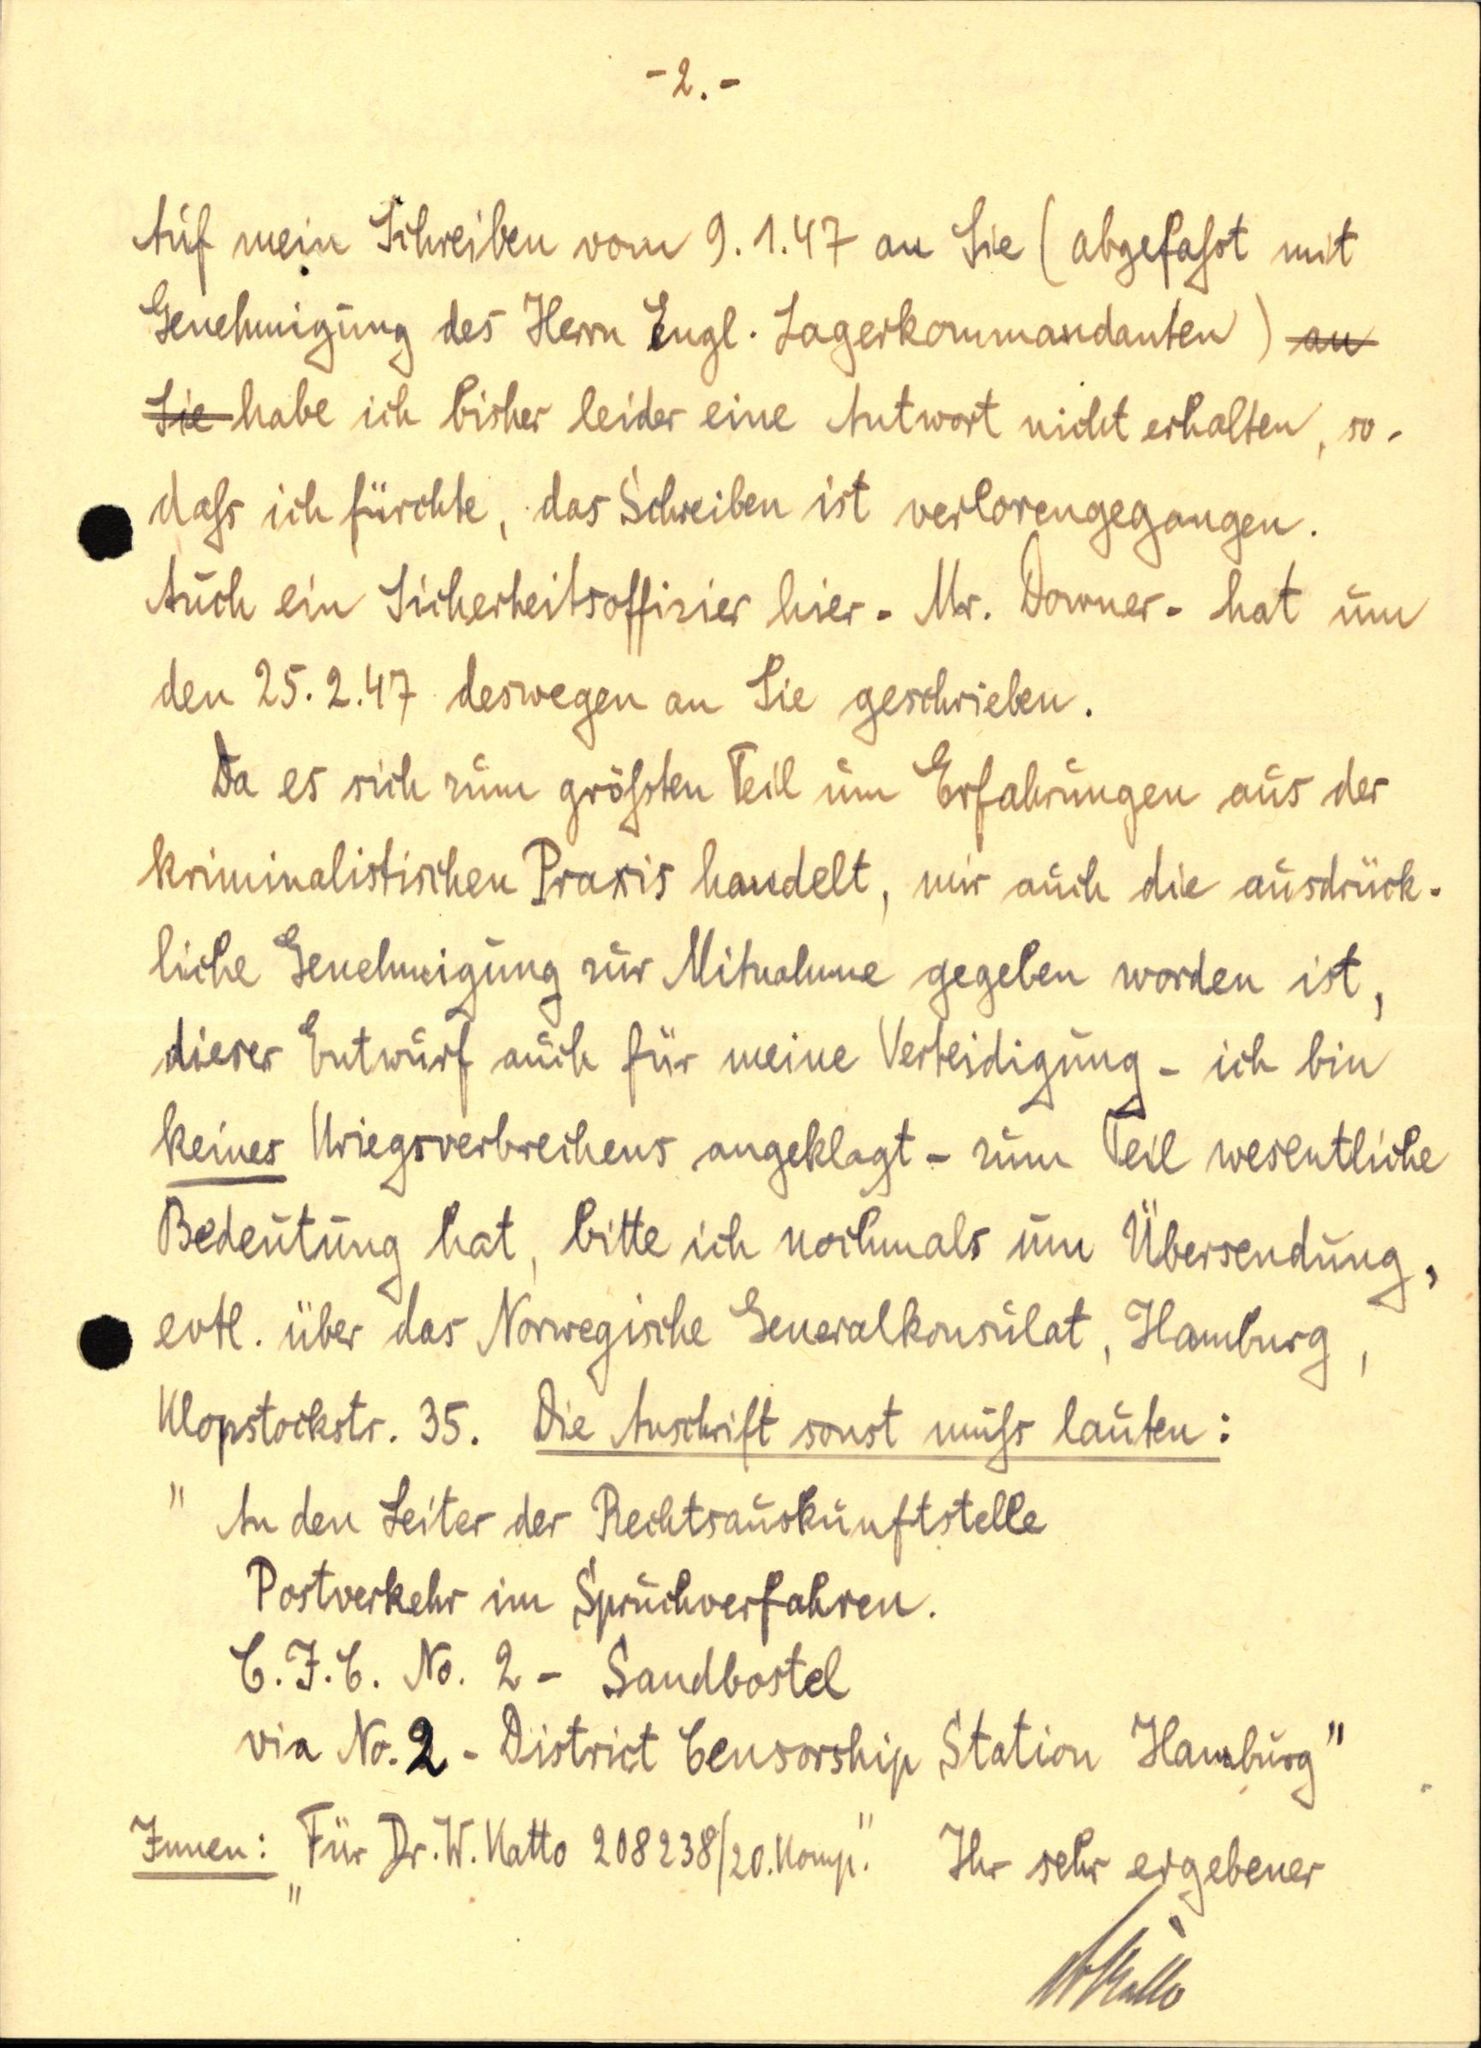 - 2. -
Auf mein Schreiben vom 9. 1. 47 an Sie (abgefaßt mit
Genehmigung des Herrn Engl. Lagerkommandanten) an
Sie habe ich bisher leider eine Antwort nicht erhalten, so-
daß ich fürchte, das Schreiben ist verlorengegangen.
Auch ein Sicherheitsoffizier hier - Mr. Downer - hat um
den 25. 2. 47 deswegen an Sie geschrieben.
Da es sich zum größten Teil um Erfahrungen aus der
kriminalistischen Praxis handelt, mir auch die ausdrück-
liche Genehmigung zur Mitnahme gegeben worden ist,
dieser Entwurf auch für meine Verteidigung - ich bin
keines Kriegsverbrechens angeklagt - zum Teil wesentliche
Bedeutung hat, bitte ich nochmals um Übersendung,
evtl. über das Norwegische Generalkonsulat, Hamburg,
Klopstockstr. 35. Die Anschrift sonst muß lauten:
" An den Leiter der Rechtsauskunftstelle
Postverkehr im Spruchverfahren.
C. I. C. No. 2 - Sandbostel
via No. 2 - District Censorship Station Hamburg"
Innen: "Für Dr. W. Katto 208238/20. Komp." Ihr sehr ergebener